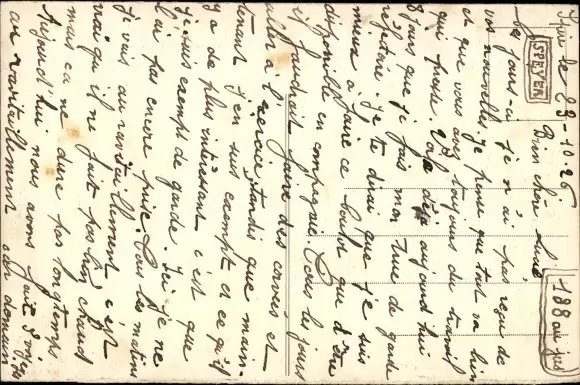 Spire le 29-10-26
SPEYER
188 au jus
Bien chère Lucie
Ces jours-ci je n'ai pas reçu de
vos nouvelles. Je pense que tout va bien
et que vous avez toujours du travail
qui presse. Voilà déjà aujourd'hui
8 jours que je fais mon tour de garde
réfectoire. Je te dirai que je suis
mieux à faire ce boulot que d'être
disponible en compagnie. Tous les jours
il faudrait faire des corvées et
aller à l'exercice tandis que main-
tenant j'en suis exempt et ce qu'il
y a de plus intéressant c'est que
je suis exempt de garde. Ici je ne
l'ai pas encore prise. Tous les matins
je vais au ravitaillement c'est
vrai qu'il ne fait pas bien chaud
mais ca ne dure pas longtemps
Aujourd'hui nous avons fait 2
au ravitaillement car demain